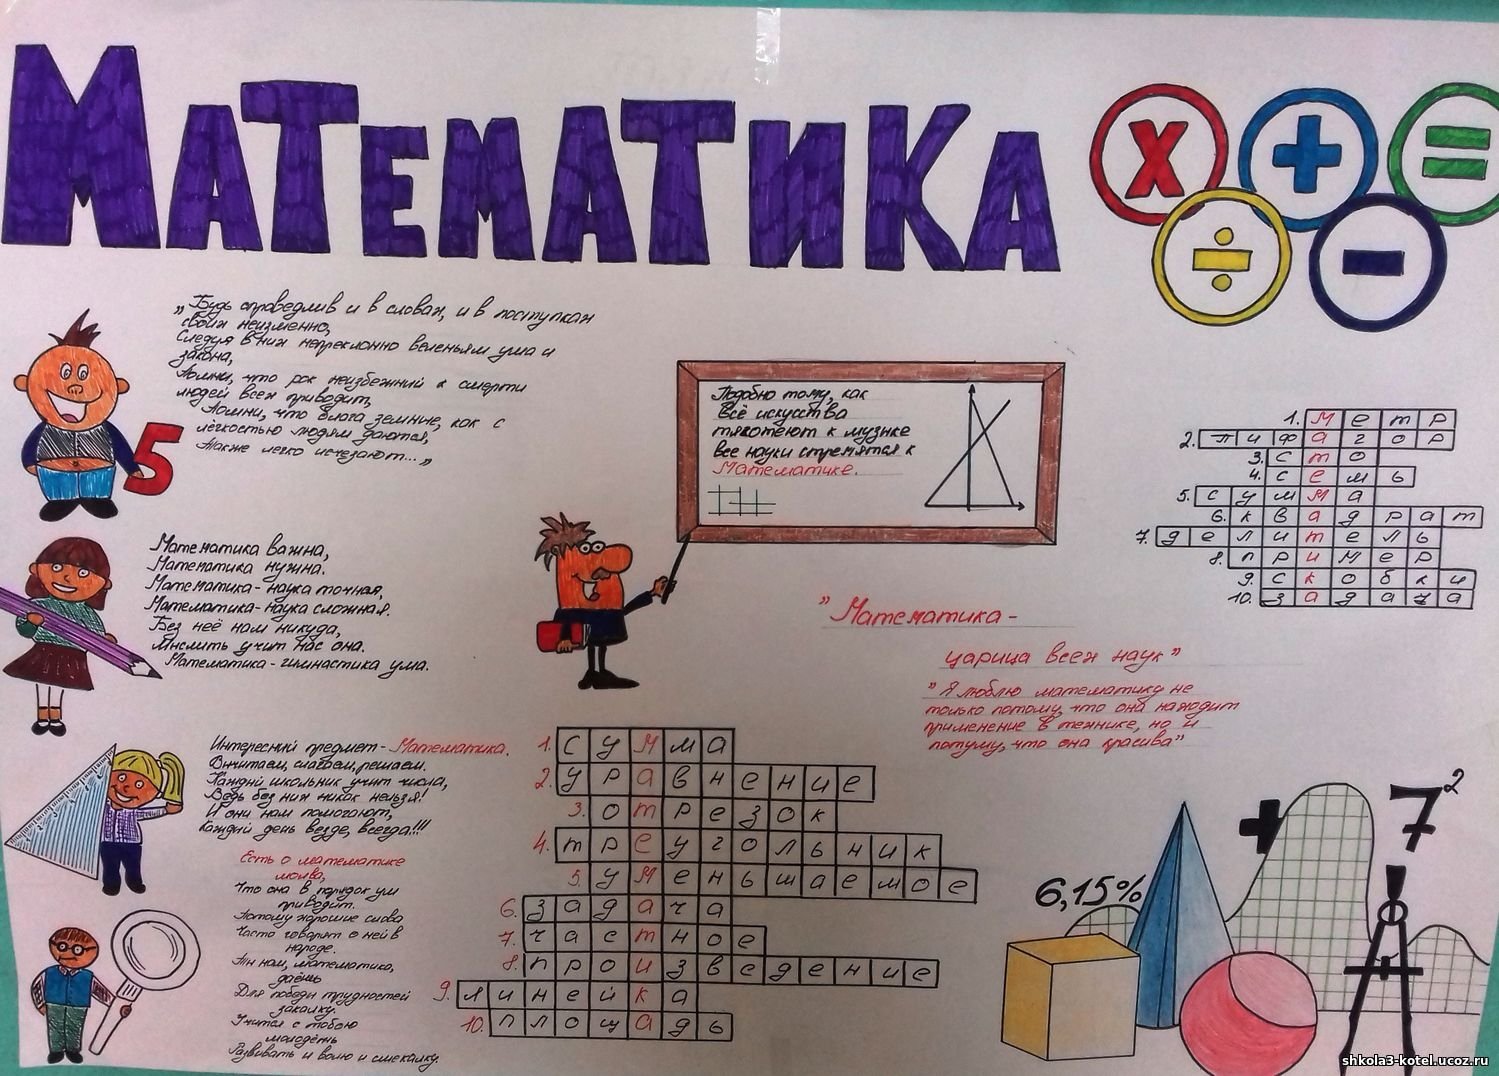 Математика
„Будь справедлив и в словах, и в поступках
своих неизменно,
Следуя в них непреклонно веленьям ума и
закона,
Помни, что рок неизбежный к смерти
людей всех приводит,
Помни, что блага земные, как с
лёгкостью людям даются,
Также легко исчезают..."
5
Подобно тому, как
все искусства
тяготеют к музыке
все науки стремятся к
Математике.
1. метр
2. пифагор
3. сто
4. семь
5. сумма
6. квадрат
7. делитель
8. пример
9. скобки
10. задача
Математика важна,
Математика нужна.
Математика - наука точная,
Математика - наука сложная.
Без неё нам никуда,
Мыслить учит нас она.
Математика - гимнастика ума.
"Математика -
царица всех наук"
"Я люблю математику не
только потому, что она находит
применение в технике, но и
потому, что она красива"
Интересный предмет - Математика.
Вычитаем, слагаем, решаем.
Каждый школьник учит числа,
Ведь без них никак нельзя!
И они нам помогают,
Каждый день везде, всегда!!!
Есть о математике
молва,
Что она в порядок ум
приводит.
Потому хорошие слова
Часто говорят о ней в
народе.
Ты нам, математика,
даёшь
Для победы трудностей
закалку.
Учится с тобою
молодёжь
Развивать и волю и смекалку.
1. сумма
2. уравнение
3. отрезок
4. треугольник
5. уменьшаемое
6. задача
7. частное
8. произведение
9. линейка
10. площадь
6,15%
7²
shkola3-kotel.ucoz.ru